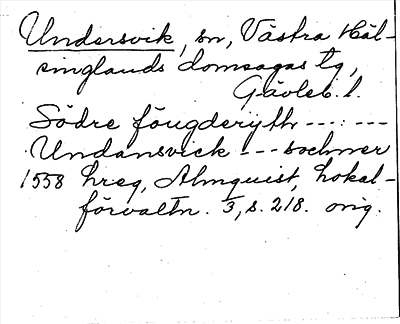 Undersvik, sn, Västra Häl-
singlands domsagas tg,
Gävleb. l.
Södre fōugderijth ---:---
Undansvick --- sochner
1558 hreg, Almquist, Lokal-
förvaltn. 3, s. 218. orig.